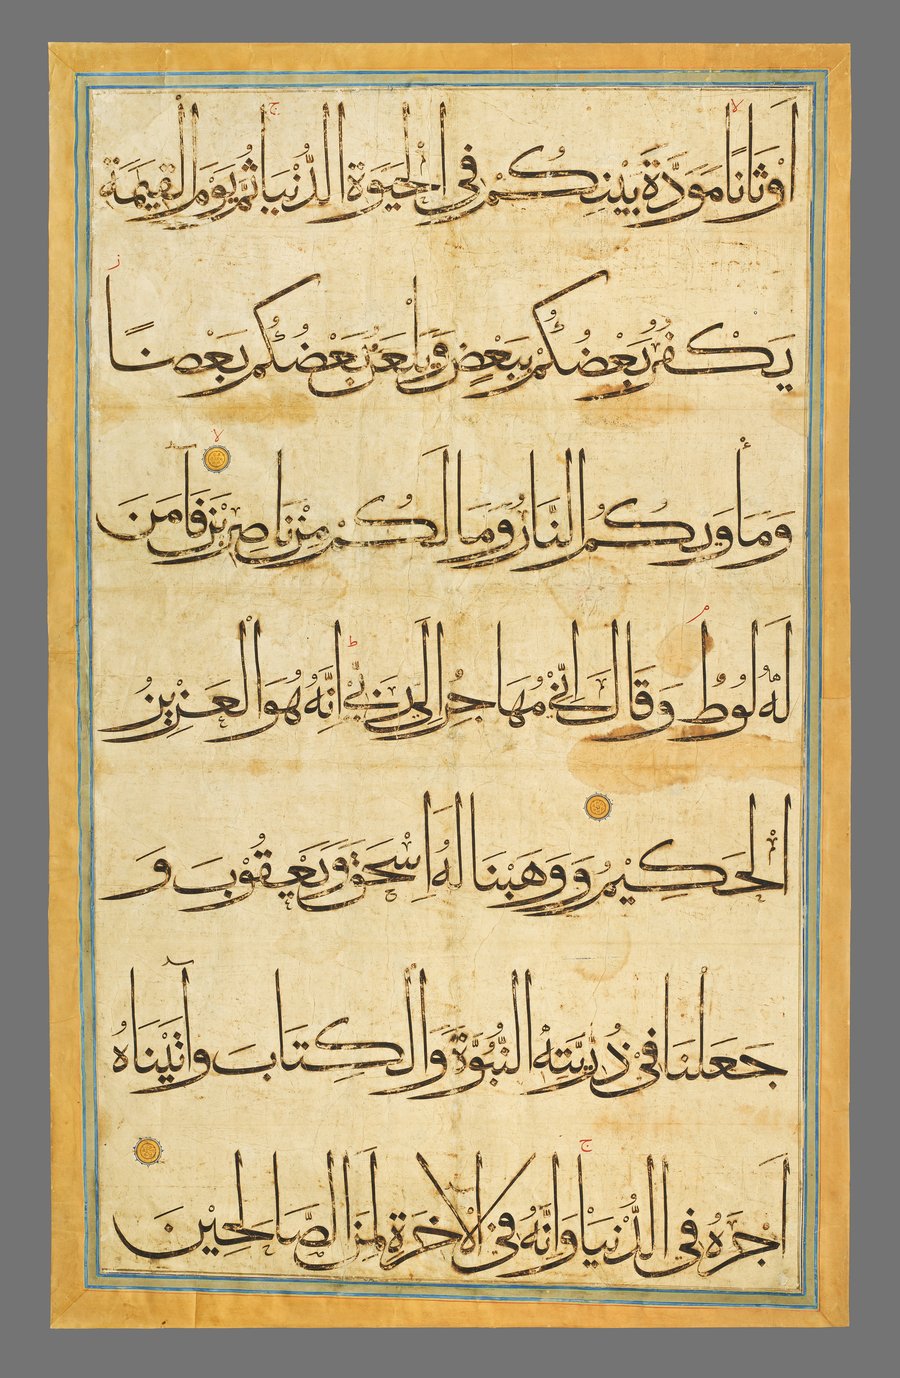 اَوْثَانًا مَوَدَّةَ بَيْنِكُمْ فِى الْحَيٰوةِ الدُّنْيَا ثُمَّ يَوْمَ الْقِيٰمَةِ
يَكْفُرُ بَعْضُكُمْ بِبَعْضٍ وَيَلْعَنُ بَعْضُكُمْ بَعْضًا
وَمَأْوٰىكُمُ النَّارُ وَمَا لَكُمْ مِنْ نَاصِرِيْنَ فَآمَنَ
لَهُ لُوطٌ وَقَالَ اِنِّى مُهَاجِرٌ اِلٰى رَبِّى اِنَّهُ هُوَ الْعَزِيْزُ
الْحَكِيْمُ وَوَهَبْنَا لَهُ اِسْحٰقَ وَيَعْقُوْبَ وَ
جَعَلْنَا فِىْ ذُرِّيَّتِهِ النُّبُوَّةَ وَالْكِتَابَ وَآتَيْنَاهُ
اَجْرَهُ فِى الدُّنْيَا وَاِنَّهُ فِى الْاٰخِرَةِ لَمِنَ الصَّالِحِيْنَ